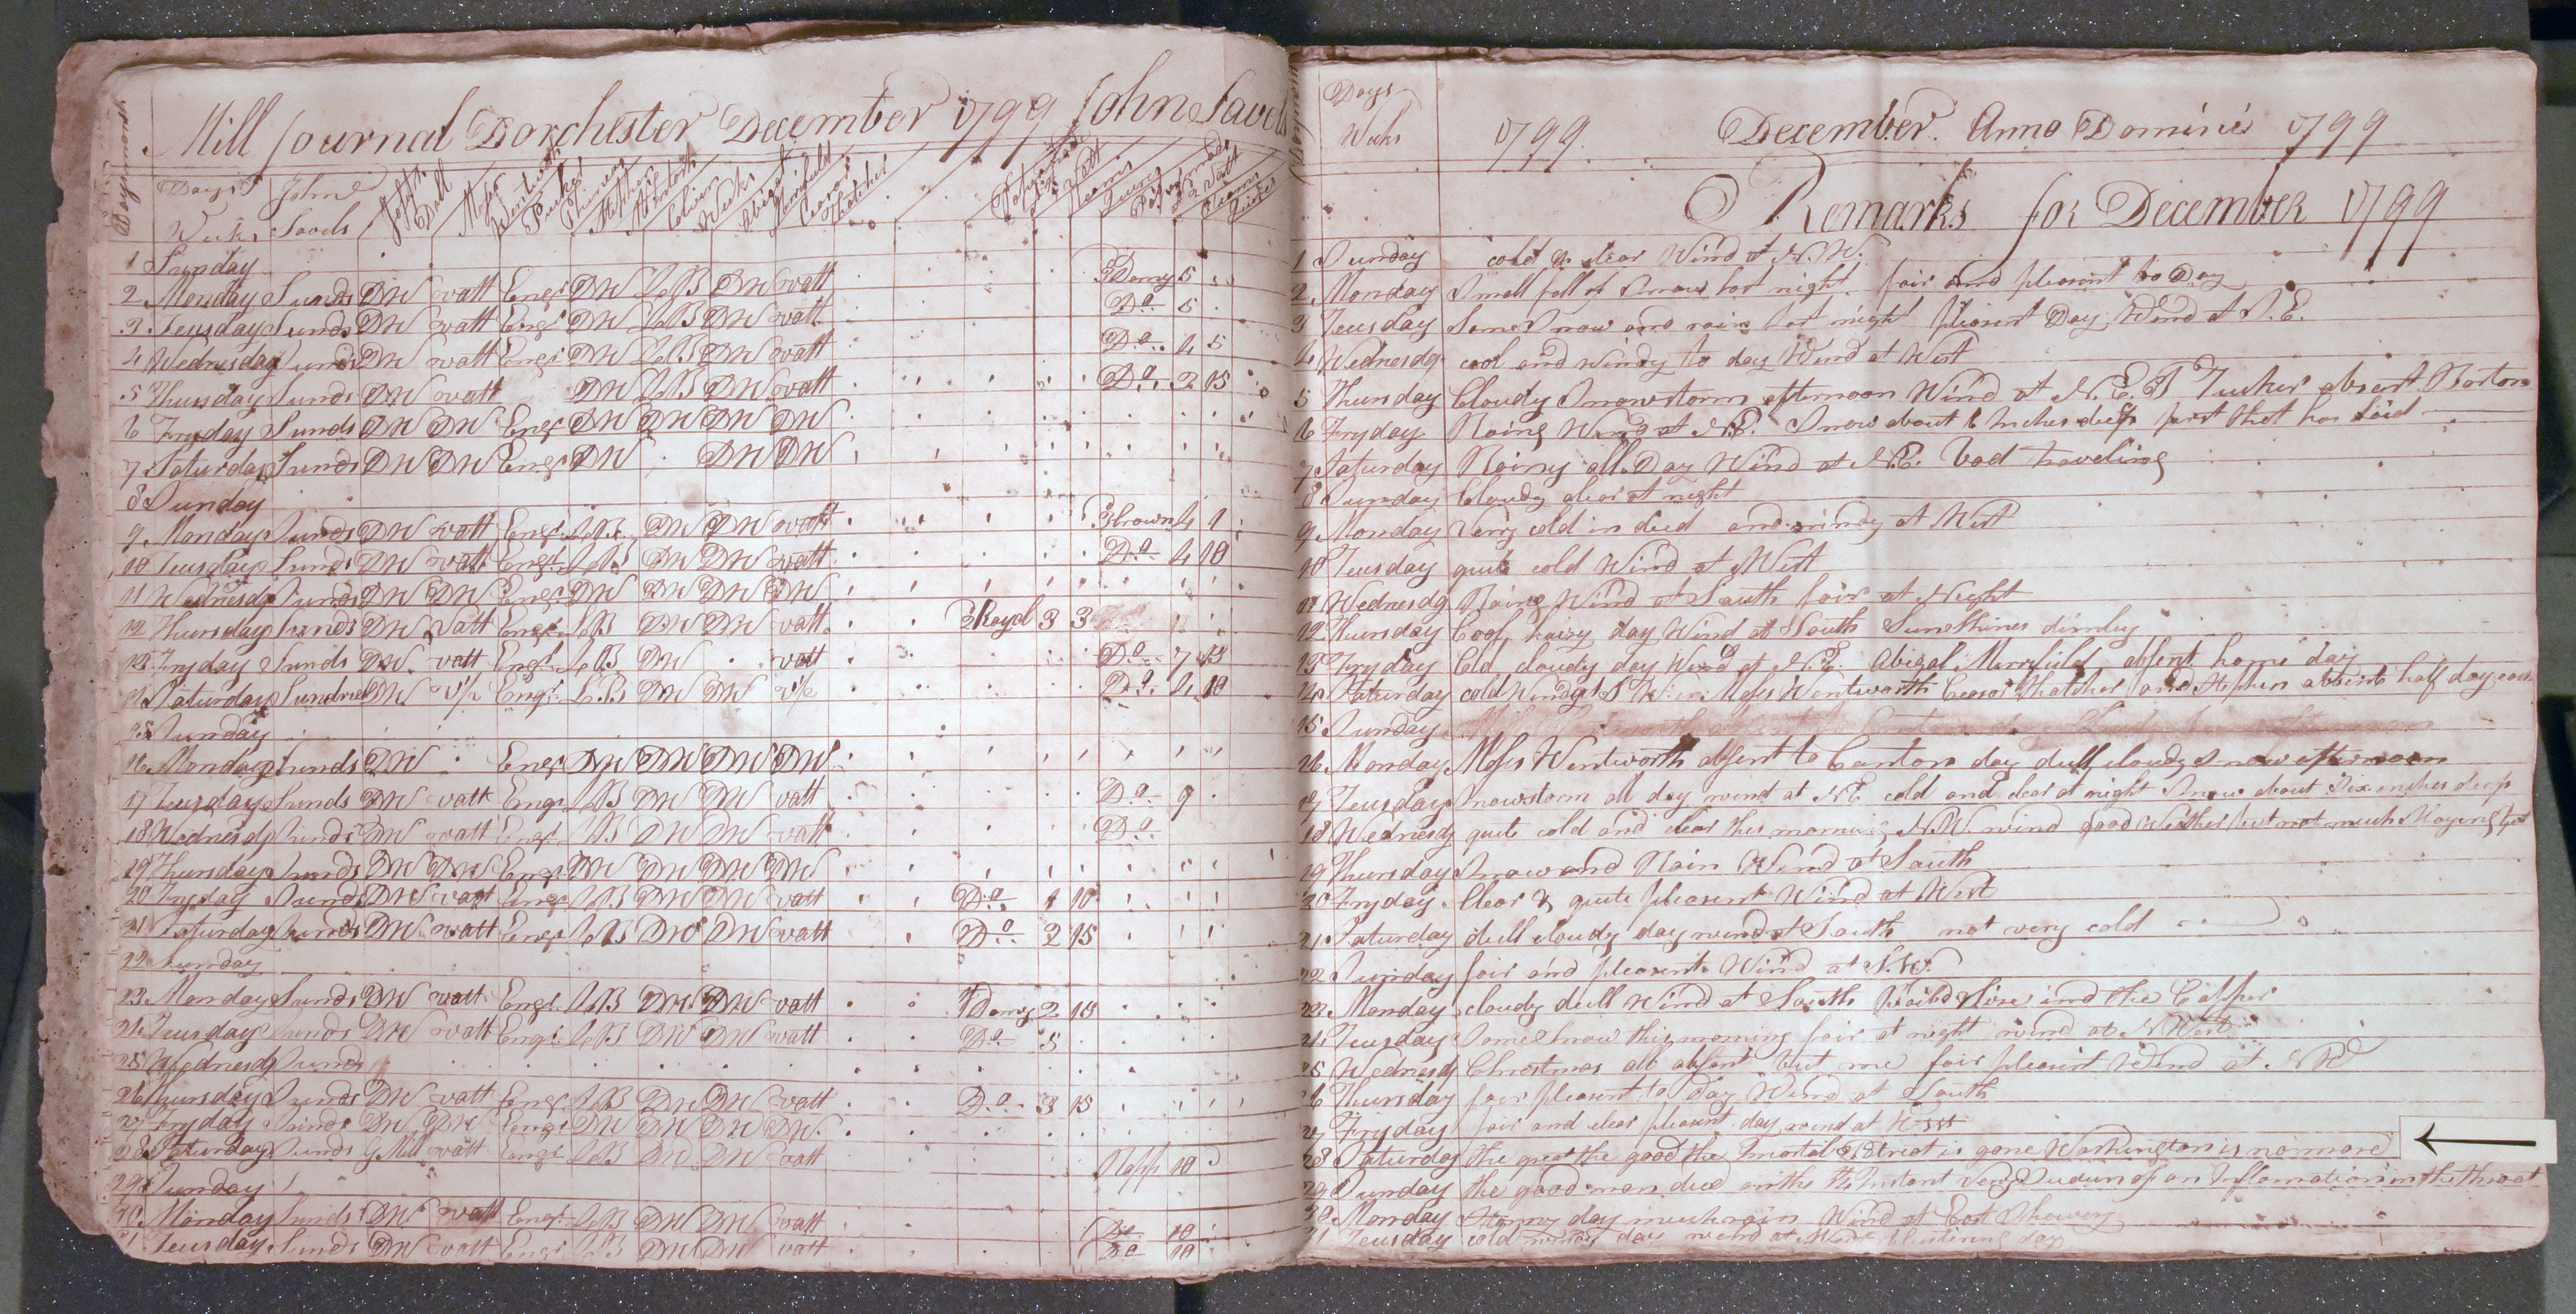 Mill Journal Dorchester December 1799 John Savels
Days month
Days Weeks
John Savels
Joseph
Moses Wentworth
Tucker
Stephen
Weeks
Abigal
Ceasar Thatcher
1 Sunday
2 Monday Sunds DW vatt Engi DW L&B DW vatt 3 Damy 5
3 Teusday Sunds DW vatt Engi DW L&B DW vatt Do 5
4 Wednesday Sunds DW vatt Engi DW L&B DW vatt Do 4 5
5 Thursday Sunds DW vatt DW L&B DW vatt Do 2 15
6 Fryday Sunds DW DW Engi DW DW DW DW
7 Saturday Sunds DW DW Engi DW DW DW
8 Sunday
9 Monday Sunds DW vatt Engi L&B DW DW vatt 3 brown 4 1
10 Teusday Sunds DW vatt Engi L&B DW DW vatt Do 4 10
11 Wednesdy Sunds DW DW Engi DW DW DW DW
12 Thursday Sunds DW vatt Engi L&B DW DW vatt 3 Royal 3 3
13 Fryday Sunds DW vatt Engi L&B DW vatt Do 7 13
14 Saturday Sundrie DW v½ Engi L&B DW DW v½ Do 4 10
15 Sunday
16 Monday Sunds DW Engi DW DW DW DW
17 Teusday Sunds DW vatt Engi L&B DW DW vatt Do 9
18 Wednesdy Sunds DW vatt Engi L&B DW DW vatt Do
19 Thursday Sunds DW DW Engi DW DW DW DW
20 Fryday Sunds DW vatt Engi L&B DW DW vatt Do 1 10
21 Saturday Sunds DW vatt Engi L&B DW DW vatt Do 3 15
22 Sunday
23 Monday Sunds DW vatt Engi L&B DW DW vatt Damy 2 15
24 Teusday Sunds DW vatt Engi L&B DW DW vatt Do 5
25 Wednesdy Sunds
26 Thursday Sunds DW vatt Engi L&B DW DW vatt Do 3 15
27 Fryday Sunds DW DW Engi DW DW DW DW
28 Saturday Sunds G Mill vatt Engi L&B DW DW vatt 10
29 Sunday
30 Monday Sunds DW vatt Engi L&B DW DW vatt Do 10
31 Teusday Sunds DW vatt Engi L&B DW DW vatt Do 10
Days Weeks
1799 December Anno Domini 1799
Remarks for December 1799
1 Sunday cold & clear Wind at N.W.
2 Monday Small fall of Snow last night fair and pleasent to Day
3 Teusday Some Snow and rain last night pleasent Day Wind at S.E.
4 Wednesdy cool and windy to day Wind at West
5 Thursday Cloudy Snowstorm afternoon Wind at N.E. Tucker absent
6 Fryday Raing Wind at N.E. Snow about 6 Inches deep first that has laid
7 Saturday Rainy all Day Wind at N.E. bad traveling
8 Sunday Cloudy clear at night
9 Monday very cold in deed and windy at West
10 Teusday quite cold Wind at West
11 Wednesdy Raing Wind at South fair at Night
12 Thursday Cool, haizy day Wind at South Sun Shines dimley
13 Fryday Cold cloudy day Wind at N.E. Abigal Merrifield absent home day
14 Saturday cold Wind at Moses Wentworth Ceasar Thatcher and Stephen absent half day each
15 Sunday
16 Monday Moses Wentworth absent to Canton day dull cloudy Snow afternoon
17 Teusday Snowstorm all day wind at NE cold and clear at night Snow about Six inches deep
18 Wednesdy quite cold and clear this morning N.W. wind good Wether but not much Slaying yet
19 Thursday Snow and Rain Wind at South
20 Fryday Clear & quite pleasent Wind at West
21 Saturday dull cloudy day wind at South not very cold
22 Sunday fair and pleasent Wind at S.W.
23 Monday cloudy dull Wind at South
24 Teusday Some Snow this morning fair at night wind at N West
25 Wednesdy Christmas all absent but me fair pleasent Wind at NW
26 Thursday fair pleasent to Day Wind at South
27 Fryday fair and clear pleasent day wind at West
28 Saturday the great the good the Imortal & Great is gone Washington is no more
29 Sunday the good man died on the Instant very Suden of an Inflamation in the throat
30 Monday Stormy day much rain Wind at East Showery
31 Teusday cold windy day wind at West